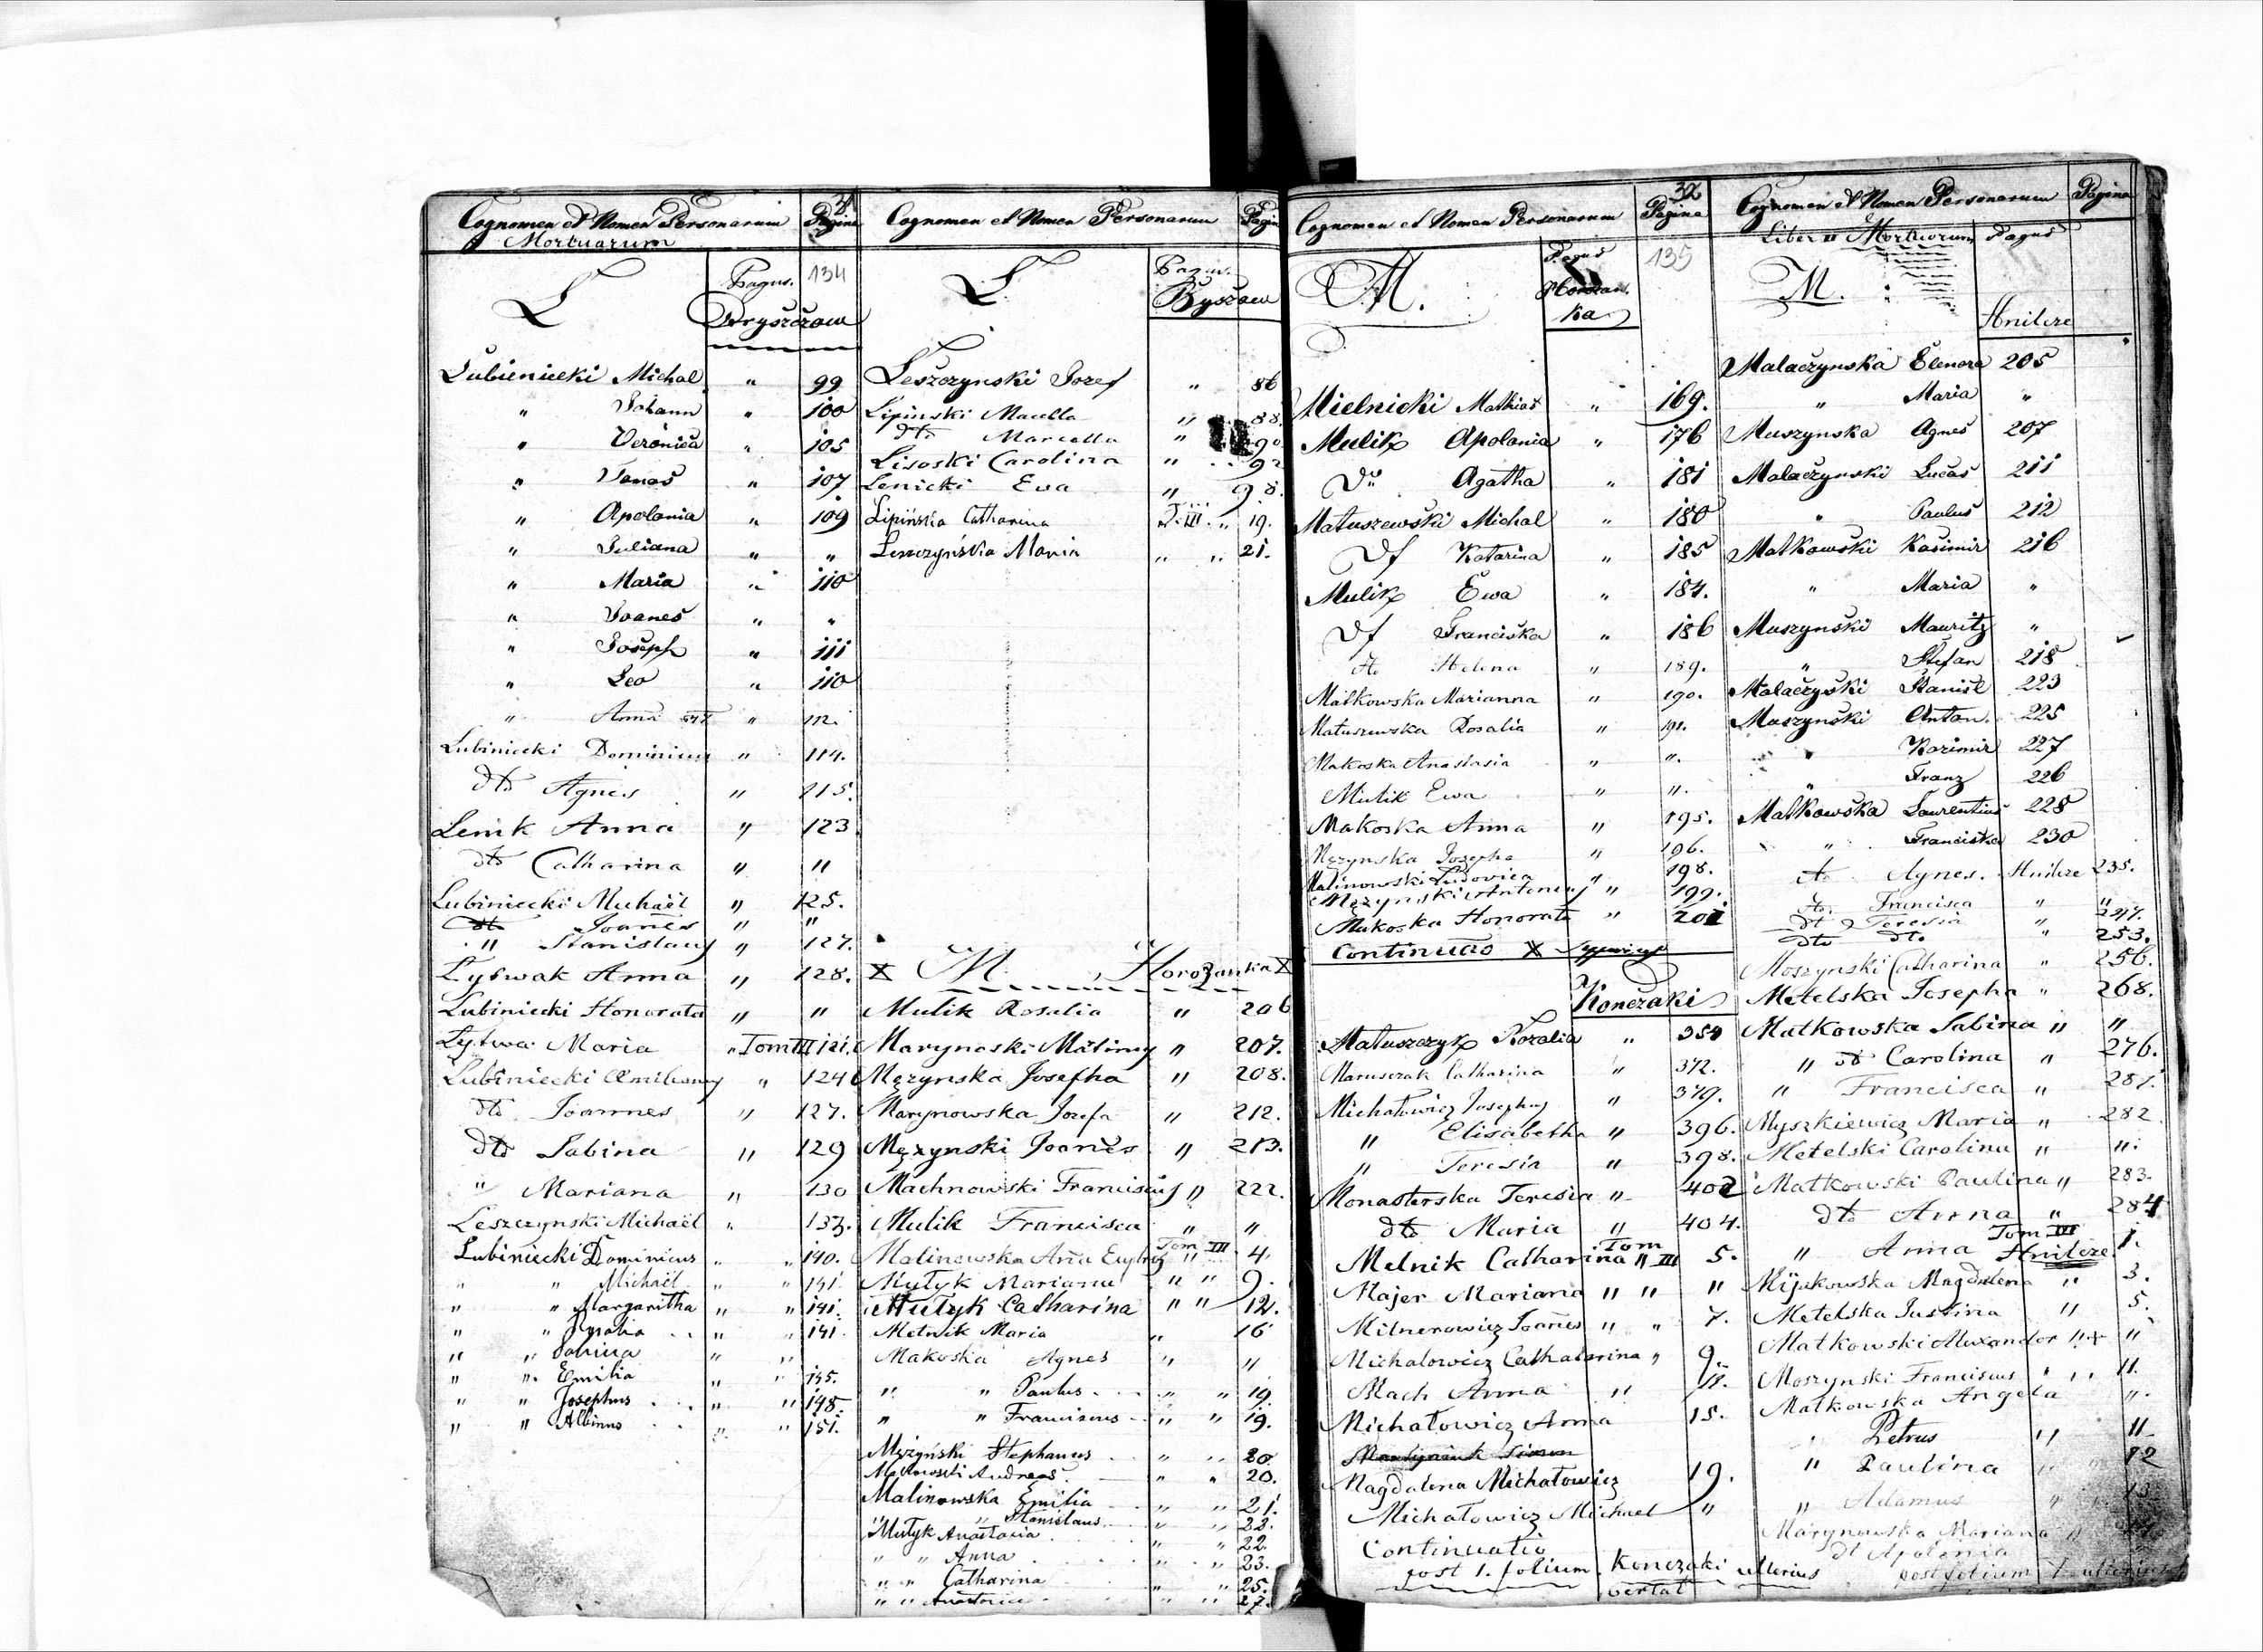 Cognomen et Nomen Personarum Pagina 31
Mortuarum
L Pagus. 134
Dryszczow
Lubieniecki Michal " 99
" Johann " 100
" Veronica " 105
" Jonas " 107
" Apolonia " 109
" Juliana " "
" Maria " 110
" Joanes " "
" Joseph " 111
" Leo " 110
" Anna " 112.
Lubiniecki Dominicus " 114.
dto Agnes " 115.
Lenik Anna " 123
dto Catharina " "
Lubiniecki Michaël " 125.
dto Joanes " "
" Stanislaus " 127.
Lytwak Anna " 128.
Lubiniecki Honorata " "
Lytwa Maria " Tom III 121.
Lubiniecki Æmilianus " 124
dto Joannes " 127.
dto Sabina " 129
" Mariana " 130
Leszczynski Michaël " 133.
Lubiniecki Dominicus " " 140.
" " Michaël " " 141.
" " Margaritha " " 141.
" " Rosalia " " 141.
" " Sabina " "
" " Emilia " " 145.
" " Josephus " " 148.
" " Albinus " " 151.
Cognomen et Nomen Personarum Pagin
L. Pagus.
Byszow
Leszczynski Jozef " 86
Lipinski Macella " 88.
dto Marcella " 90
Lisoski Carolina " 92
Lenicki Ewa " 98.
Lipińska Catharina T. III. " 19.
Leszczyńska Maria " " 21.
X M. Horozanka X
Mulik Rosalia " 206
Marynoski Matinus " 207.
Męzynska Josepha " 208.
Marynowska Jozefa " 212.
Męzynski Joanes " 213.
Machnowski Franciscus " 222.
Mulik Francisca " "
Malinowska Aña Tom III. 4.
Mytyk Marianna " " 9.
Mutyk Catharina " " 12.
Melnik Maria " 16
Makoska Agnes " "
" " Paulus " " 19.
" " Franciscus " " 19.
Mężyński Stephanus " " 20.
Andreas " " 20.
Malinowska Emilia " " 21.
" " Stanislaus " " 22.
Mutyk Anastasia " " 22.
" " Anna " 23.
" " Catharina " " 25.
" " Anastasia " " 27.
Cognomen et Nomen Personarum Pagina 32
M. Pagus 135
Horozan.
ka
Mielnicki Mathias " 169.
Mulik Apolonia " 176
Do Agatha " 181
Matuszewski Michal " 180
Df Katarina " 185
Mulik Ewa " 184.
Df Franciska " 186
dto Helena " 189.
Matkowska Marianna " 190.
Matuszewska Rosalia " 191.
Makoska Anastasia " ".
Mulik Ewa " ".
Makoska Anna " 195.
Męzynska Josepha " 196.
Malinowski Ludovica " 198.
Męzynski Antonius " 199.
Makoska Honorata " 201
Continuatio X
Konczaki
Matuszczyk Rozalia " 354
Maruszczak Catharina " 372.
Michałowicz Josephus " 379.
" Elisabetha " 396.
" Teresia " 398.
Monasterska Teresia " 402
dto Maria " 404.
Melnik Catharina Tom III 5.
Majer Mariana " " "
Milnerowicz Joanes " " 7.
Michalowicz Cathatarina " 9.
Mach Anna " 11.
Michatowicz Anna 15.
Magdalena Michatowicz 19.
Michatowicz Michael "
Continuatio
post 1. folium. Konczaki ulterius
vertat
Cognomen et Nomen Personarum Pagina
Liber Mortuorum Pagus
M.
Hnilcze
Malaczynska Elenora 205
" Maria "
Muszynska Agnes 207
Malaczynski Lucas 211
" Paulus 212
Matkowski Kasimir 216
" Maria "
Muszynski Mauritz "
" Stefan 218
Malaczyski Stanisl 223
Muszynski Anton. 225
" Kazimir 227
" Franz 226
Matkowska Laurentius 228
" Franciska 230
dto Agnes. Hnilcze 235.
dto Francisca " "
dt Teresia " 247.
dto dto " 253.
Moszynski Catharina " 256.
Metelska Josepha " 268.
Matkowska Sabina " "
" dto Carolina " 276.
" Francisca " 281.
Myszkiewicz Maria " 282
Metelski Carolina " ".
Matkowski Paulina " 283.
dto Anna " 284
" Anna Tom III Hnilcze 1.
Mijakowska Magdalena " 3.
Metelska Justina " 5.
Matkowski Alexander " "
Moszynski Franciscus " " 11.
Matkowska Angela ".
" Petrus " 11
" Paulina " 12
" Adamus " 13
Marynowska Mariana "
dt Apolonia
post folium 1 ulterius